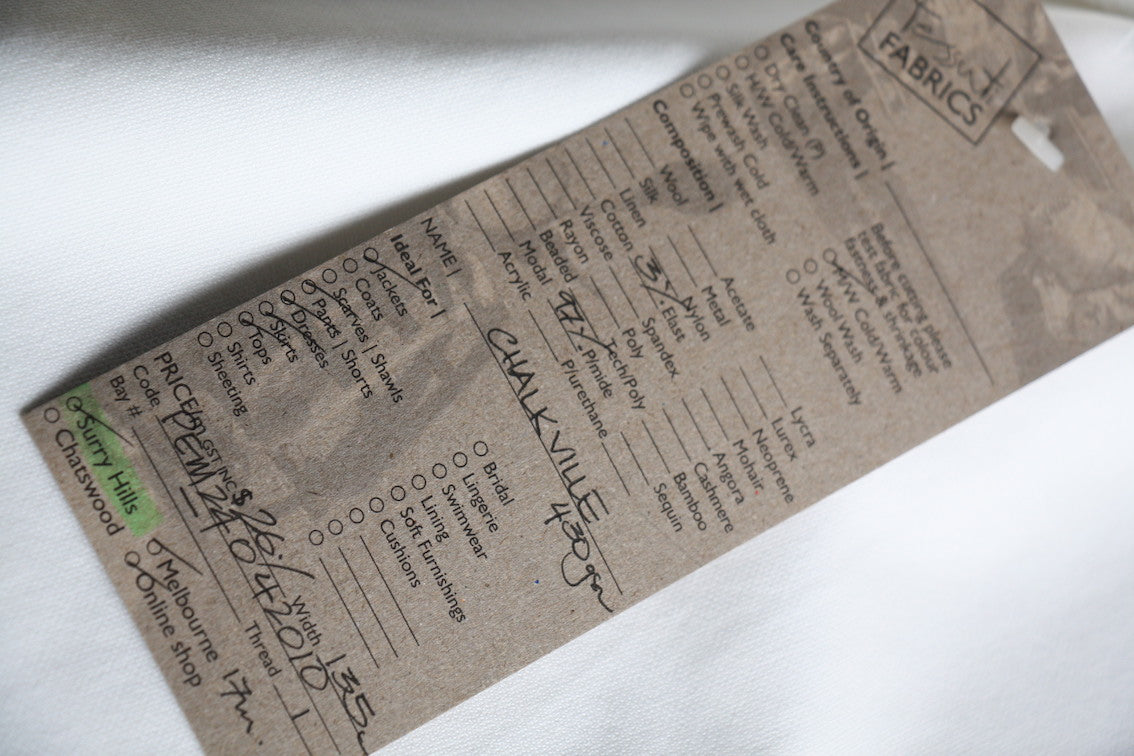 Tessuti
FABRICS
Country of Origin |
Care Instructions |
Before cutting please
test fabric for colour
fastness & shrinkage
Dry Clean (P)
H/W Cold/Warm
Silk Wash
Prewash Cold
Wipe with wet cloth
H/W Cold/Warm
Wool Wash
Wash Separately
Composition |
Wool
Silk
Linen
Cotton
Viscose
Rayon
Beaded
Modal
Acrylic
Acetate
Metal
Nylon
3% Elast
Spandex
Poly
Tech/Poly
97% P/mide
P/urethane
Lycra
Lurex
Neoprene
Mohair
Angora
Cashmere
Bamboo
Sequin
NAME | CHALKVILLE
430gsm
Ideal For |
Jackets
Coats
Scarves | Shawls
Pants | Shorts
Dresses
Skirts
Tops
Shirts
Sheeting
Bridal
Lingerie
Swimwear
Lining
Soft Furnishings
Cushions
Width 135
Code PEM24042010
Bay #
Thread
Surry Hills
Chatswood
Melbourne 17m.
Online shop